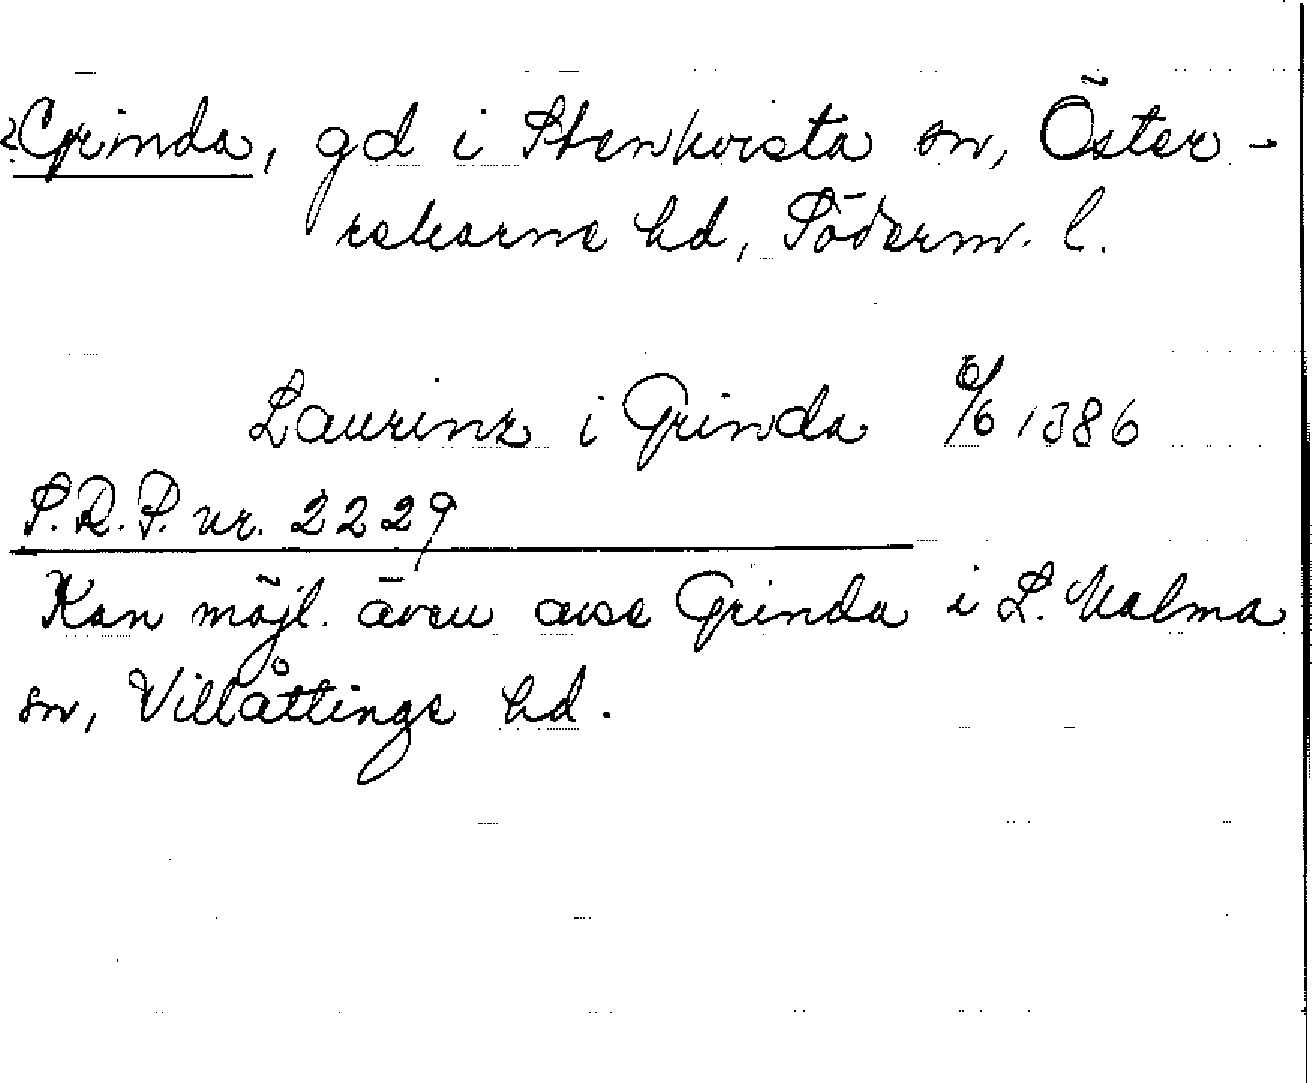 ?Grinda, gd i Stenkvista sn, Öster-
rekarne hd, Söderm. l.
Laurinz i Grinda 6/6 1386
S.R.P. nr. 2229
Kan möjl. även avse Grinda i L. Malma
sn, Villåttinge hd.